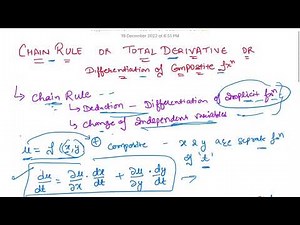 19 December 2022 at 8:53 PM
CHAIN RULE OR TOTAL DERIVATIVE OR
Differentiation of Composite fxⁿ
↳ Chain Rule --
↳ Deduction - Differentiation of Implicit fxⁿ
↳ Change of Independent variables
u = f(x,y) Composite - x & y are separate fxⁿ of 't'
du/dt = ∂u/∂x · dx/dt + ∂u/∂y · dy/dt